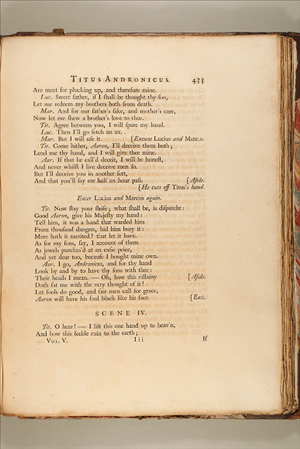 TITUS ANDRONICUS. 433
Are meet for plucking up, and therefore mine.
Luc. Sweet father, if I shall be thought thy son,
Let me redeem my brothers both from death.
Mar. And for our father's sake, and mother's care,
Now let me shew a brother's love to thee.
Tit. Agree between you, I will spare my hand.
Luc. Then I'll go fetch an ax.
Mar. But I will use it. [Exeunt Lucius and Marcus.
Tit. Come hither, Aaron, I'll deceive them both;
Lend me thy hand, and I will give thee mine.
Aar. If that be call'd deceit, I will be honest,
And never whilst I live deceive men so.
But I'll deceive you in another sort,
And that you'll say ere half an hour pass. [Aside.
[He cuts off Titus's hand.
Enter Lucius and Marcus again.
Tit. Now stay your strife; what shall be, is dispatcht:
Good Aaron, give his Majesty my hand:
Tell him, it was a hand that warded him
From thousand dangers, bid him bury it:
More hath it merited? that let it have.
As for my sons, say, I account of them
As jewels purchas'd at an easie price,
And yet dear too, because I bought mine own.
Aar. I go, Andronicus, and for thy hand
Look by and by to have thy sons with thee:
Their heads I mean. — Oh, how this villainy [Aside.
Doth fat me with the very thought of it!
Let fools do good, and fair men call for grace,
Aaron will have his soul black like his face. [Exit.
SCENE IV.
Tit. O hear! — I lift this one hand up to heav'n,
And bow this feeble ruin to the earth;
VOL. V. Iii If